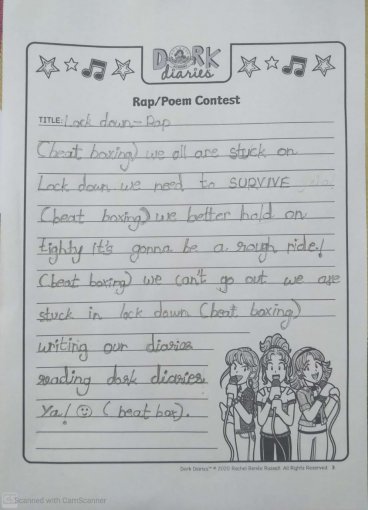 DORK
diaries
Rap/Poem Contest
TITLE: Lock down-Rap
(beat boxing) we all are stuck on
Lock down we need to SURVIVE
(beat boxing) we better hold on
tighty It's gonna be a rough ride!
(beat boxing) we can't go out we are
stuck in lock down (beat boxing)
writing our diaries
reading dork diaries
Ya! ☺ (beat box).
Dork Diaries™ © 2020 Rachel Renée Russell. All Rights Reserved. 3
Scanned with CamScanner